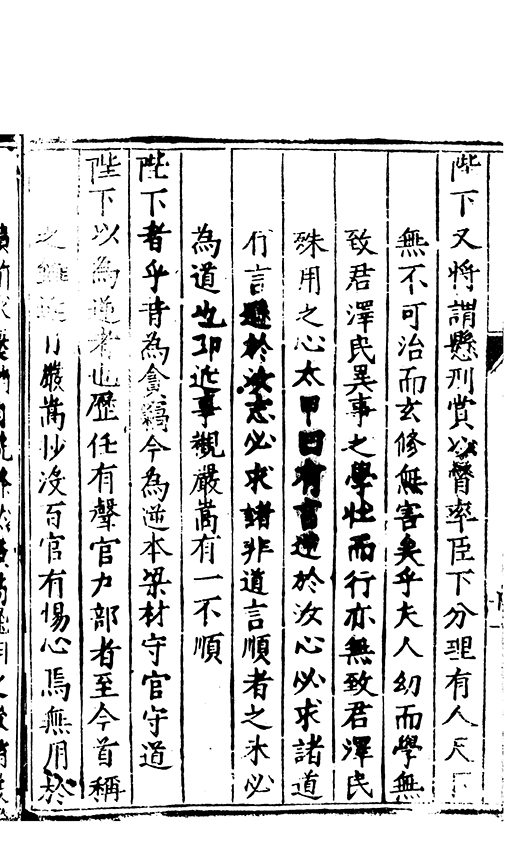 陛下又將謂懸刑賞以督率臣下分理有人天下
無不可治而玄修無害矣乎夫人幼而學無
致君澤民異事之學壯而行亦無致君澤民
殊用之心太甲曰有言逆於汝心必求諸道
言遜於汝志必求諸非道言順者之未必
為道也即近事觀嚴嵩有一不順
陛下者乎昔為貪竊今為逆本梁材守官守道
陛下以為逆者也歷任有聲官户部者至今首稱
之雖近日嚴嵩抄沒百官有惕心焉無用於